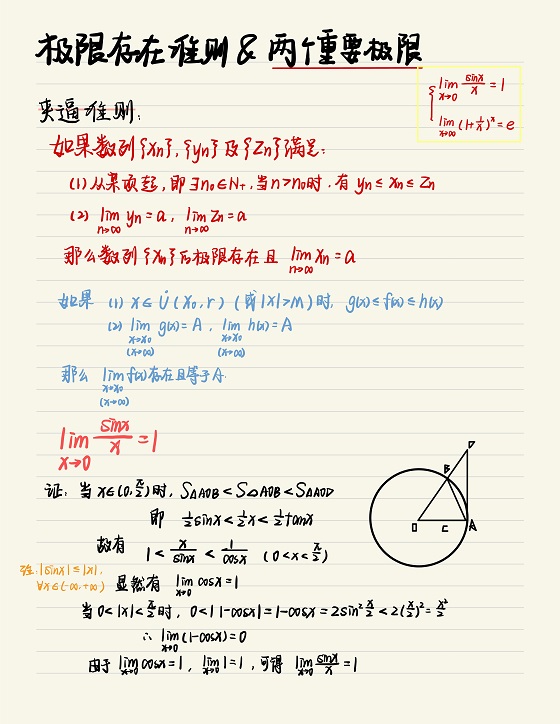 极限存在准则 & 两个重要极限
lim x→0 sinx/x = 1
lim x→∞ (1+1/x)^x = e
夹逼准则:
如果数列{Xn},{yn}及{Zn}满足:
(1) 从某项起,即∃n₀∈N₊,当n>n₀时.有 yn ≤ Xn ≤ Zn
(2) lim n→∞ yn = a, lim n→∞ Zn = a
那么数列{Xn}的极限存在且 lim n→∞ Xn = a
如果 (1) x∈Ů(x₀,r) (或|x|>M)时, g(x)≤f(x)≤h(x)
(2) lim x→x₀ (x→∞) g(x) = A, lim x→x₀ (x→∞) h(x) = A
那么 lim x→x₀ (x→∞) f(x)存在且等于A.
lim x→0 sinx/x = 1
证: 当 x∈(0,π/2)时, S△AOB < S⌓AOB < S△AOD
即 ½sinx < ½x < ½tanx
故有 1 < x/sinx < 1/cosx (0<x<π/2)
注:|sinx|≤|x|,
∀x∈(-∞,+∞)
显然有 lim x→0 cosx = 1
当 0<|x|<π/2时, 0<|1-cosx| = 1-cosx = 2sin²x/2 < 2(x/2)² = x²/2
∴ lim x→0 (1-cosx) = 0
由于 lim x→0 cosx = 1, lim x→0 1 = 1, 可得 lim x→0 sinx/x = 1
D
B
O
C
A